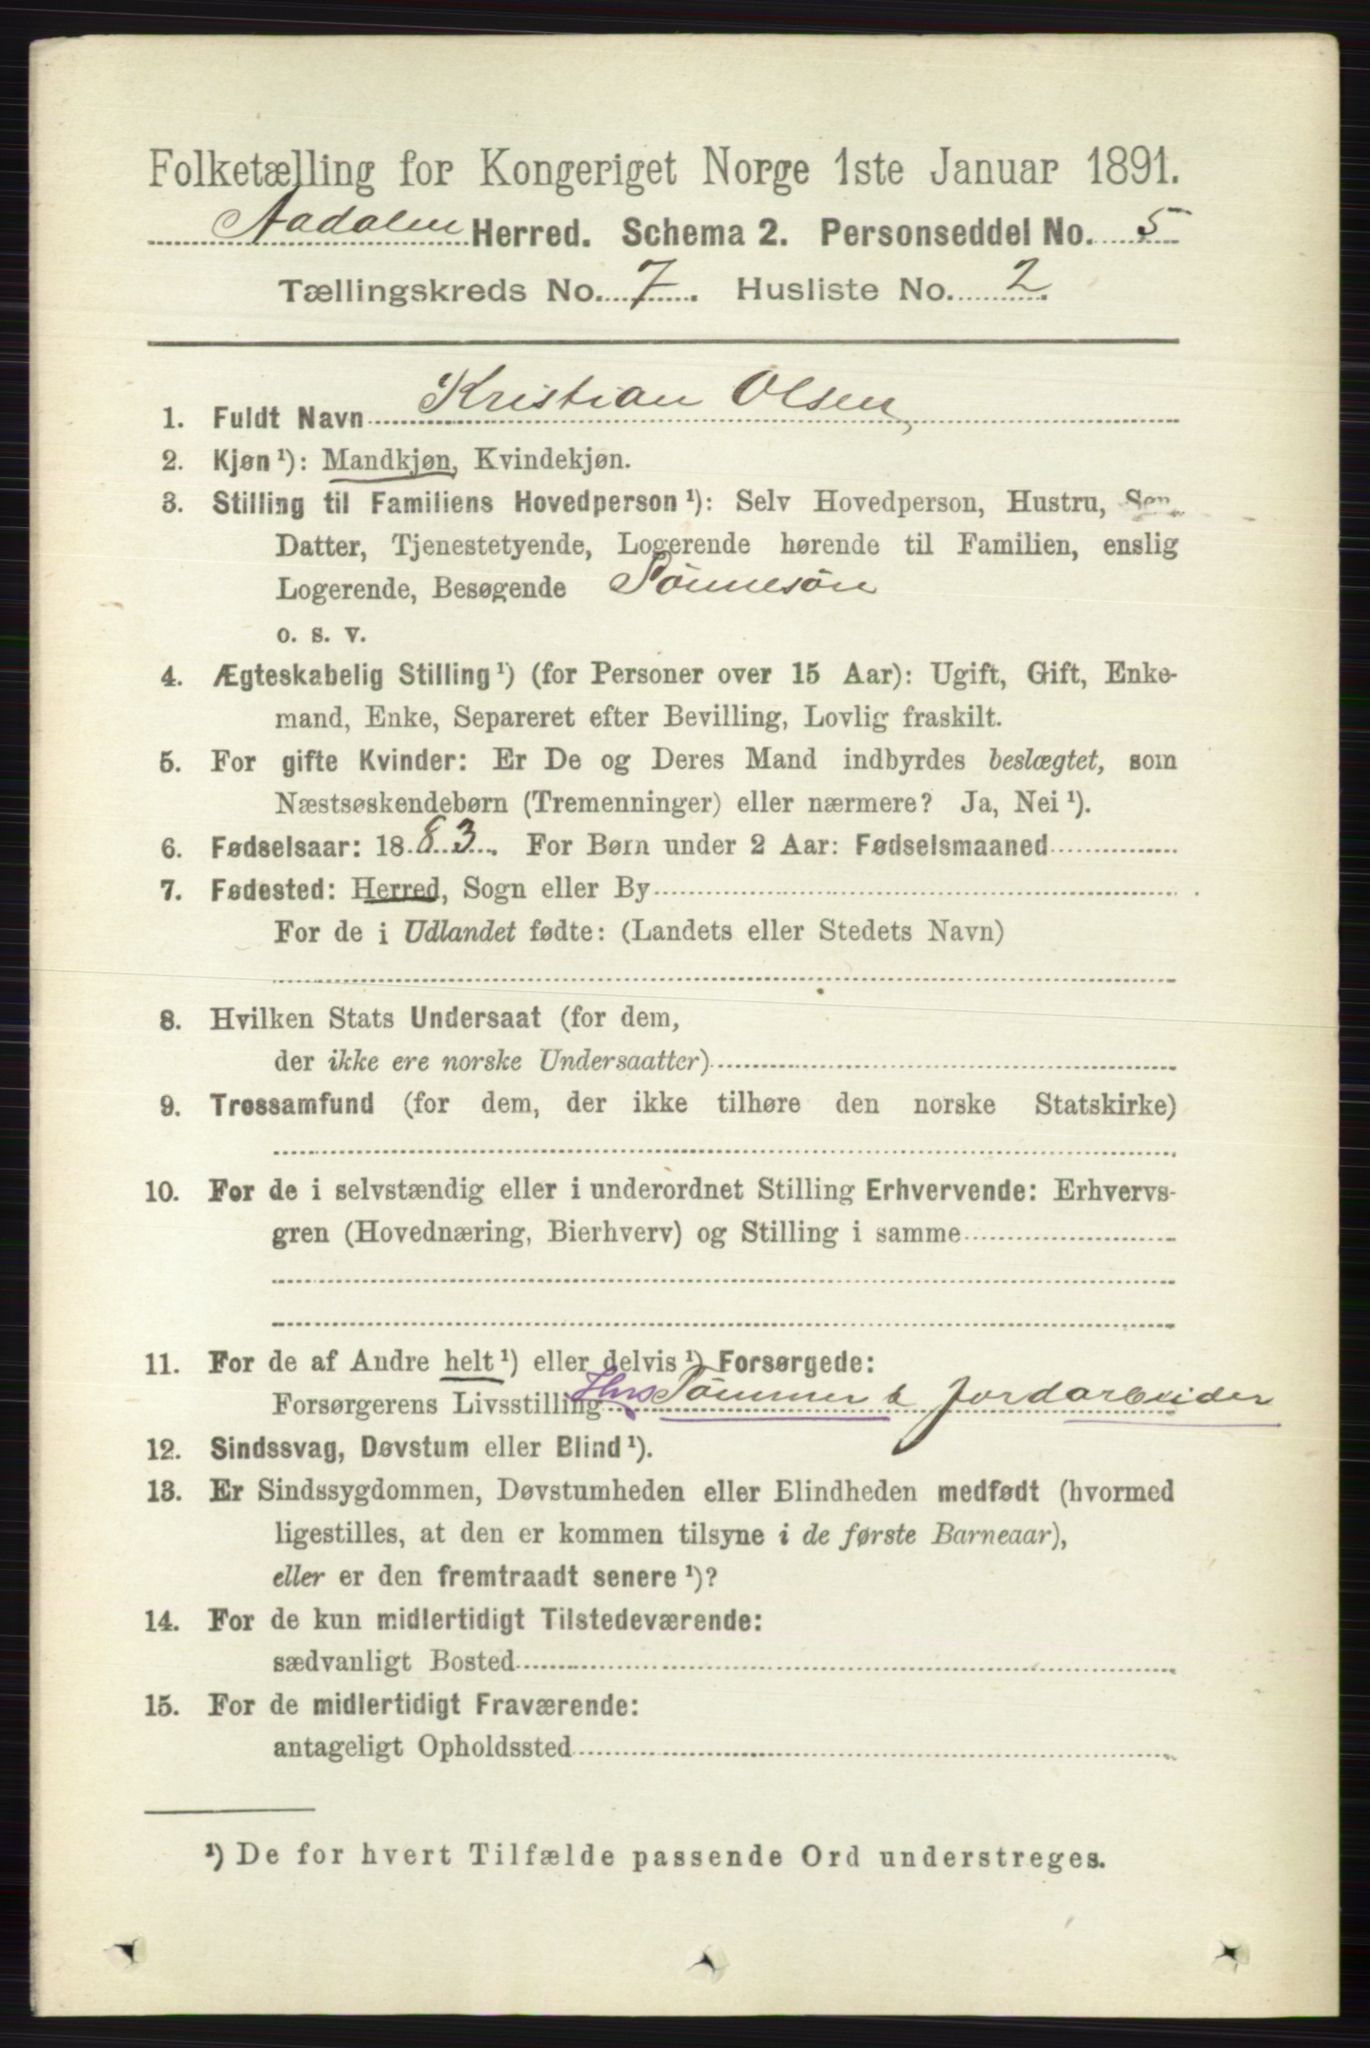 Folketælling for Kongeriget Norge 1ste Januar 1891.
Aadalen Herred. Schema 2. Personseddel No. 5
Tællingskreds No. 7. Husliste No. 2.
1. Fuldt Navn Kristian Olsen,
2. Kjøn ¹): Mandkjøn, Kvindekjøn.
3. Stilling til Familiens Hovedperson ¹): Selv Hovedperson, Hustru, Søn,
Datter, Tjenestetyende, Logerende hørende til Familien, enslig
Logerende, Besøgende Sønnesøn
o. s. v.
4. Ægteskabelig Stilling ¹) (for Personer over 15 Aar): Ugift, Gift, Enke-
mand, Enke, Separeret efter Bevilling, Lovlig fraskilt.
5. For gifte Kvinder: Er De og Deres Mand indbyrdes beslægtet, som
Næstsøskendebørn (Tremenninger) eller nærmere? Ja, Nei ¹).
6. Fødselsaar: 1883. For Børn under 2 Aar: Fødselsmaaned
7. Fødested: Herred, Sogn eller By
For de i Udlandet fødte: (Landets eller Stedets Navn)
8. Hvilken Stats Undersaat (for dem,
der ikke ere norske Undersaatter)
9. Trossamfund (for dem, der ikke tilhøre den norske Statskirke)
10. For de i selvstændig eller i underordnet Stilling Erhvervende: Erhvervs-
gren (Hovednæring, Bierhverv) og Stilling i samme
11. For de af Andre helt ¹) eller delvis ¹) Forsørgede:
Forsørgerens Livsstilling Tømmer & Jordarbeider
12. Sindssvag, Døvstum eller Blind ¹).
13. Er Sindssygdommen, Døvstumheden eller Blindheden medfødt (hvormed
ligestilles, at den er kommen tilsyne i de første Barneaar),
eller er den fremtraadt senere ¹)?
14. For de kun midlertidigt Tilstedeværende:
sædvanligt Bosted
15. For de midlertidigt Fraværende:
antageligt Opholdssted
¹) De for hvert Tilfælde passende Ord understreges.